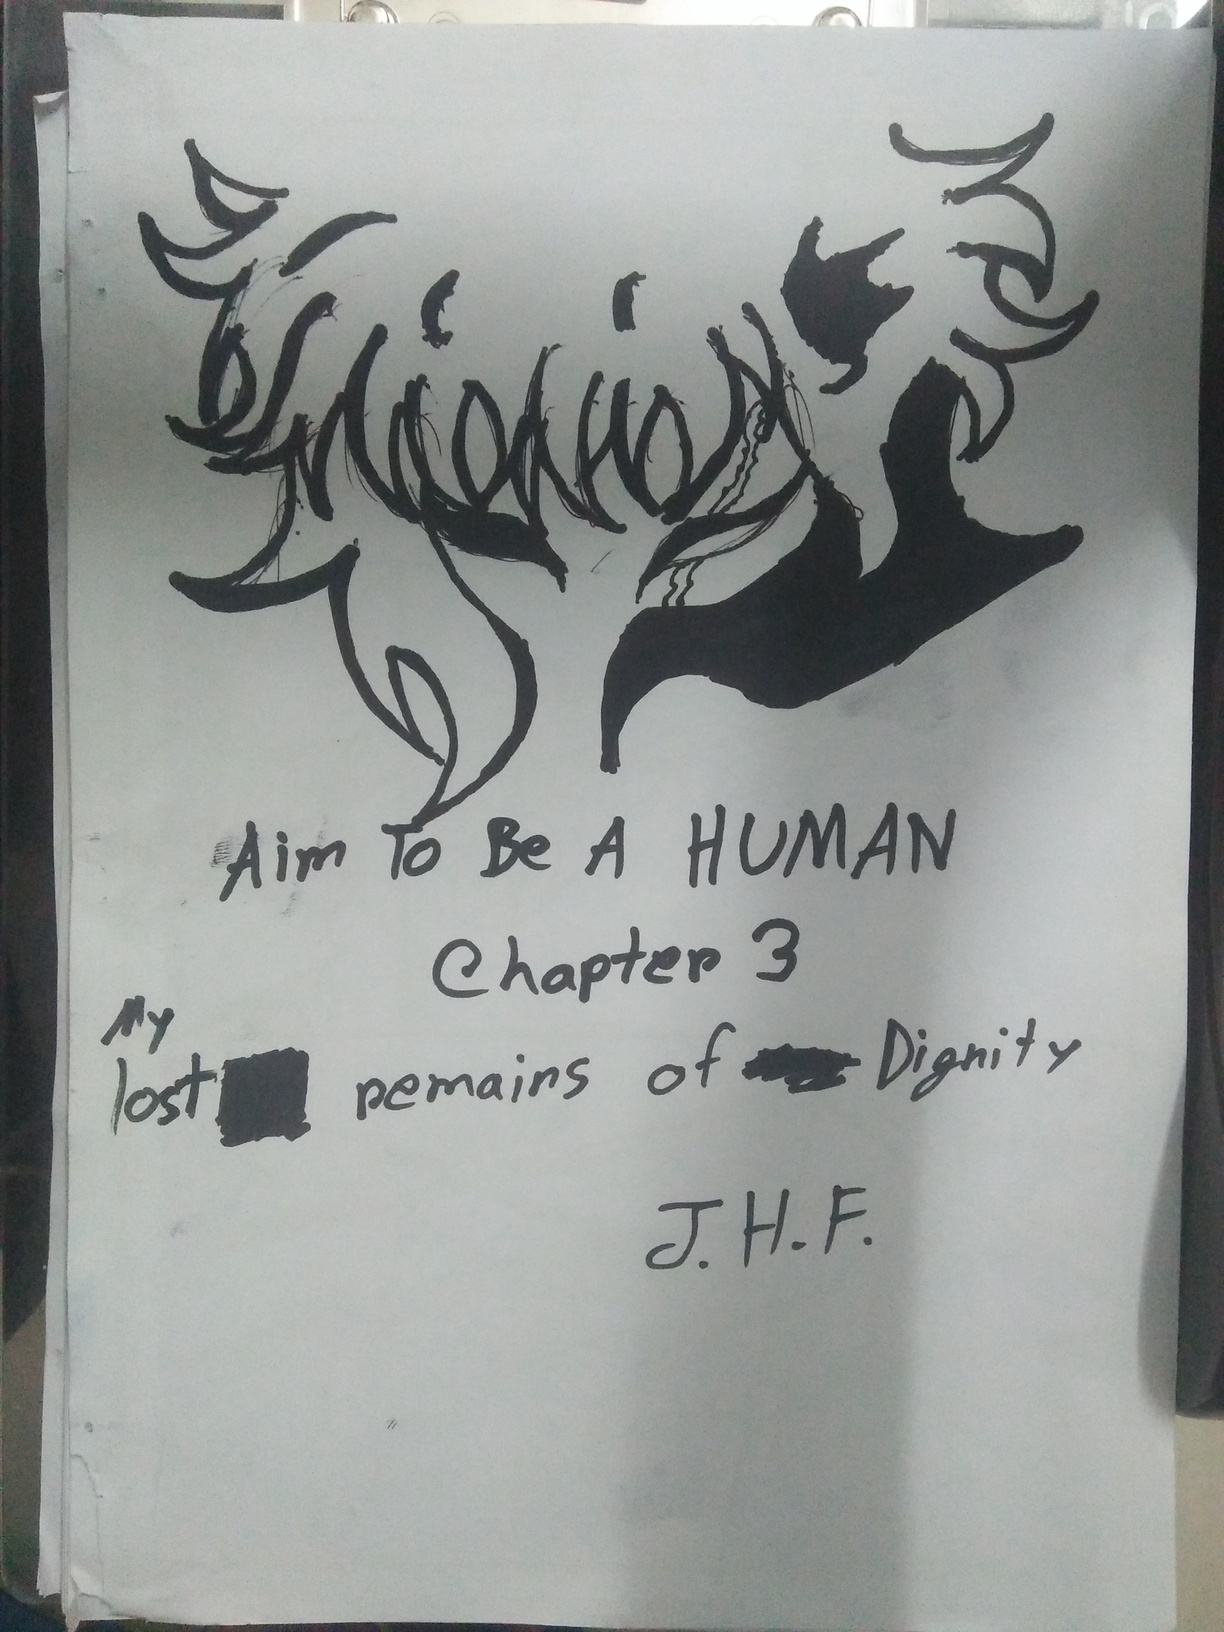 Aim To Be A HUMAN
Chapter 3
My
lost remains of Dignity
J.H.F.